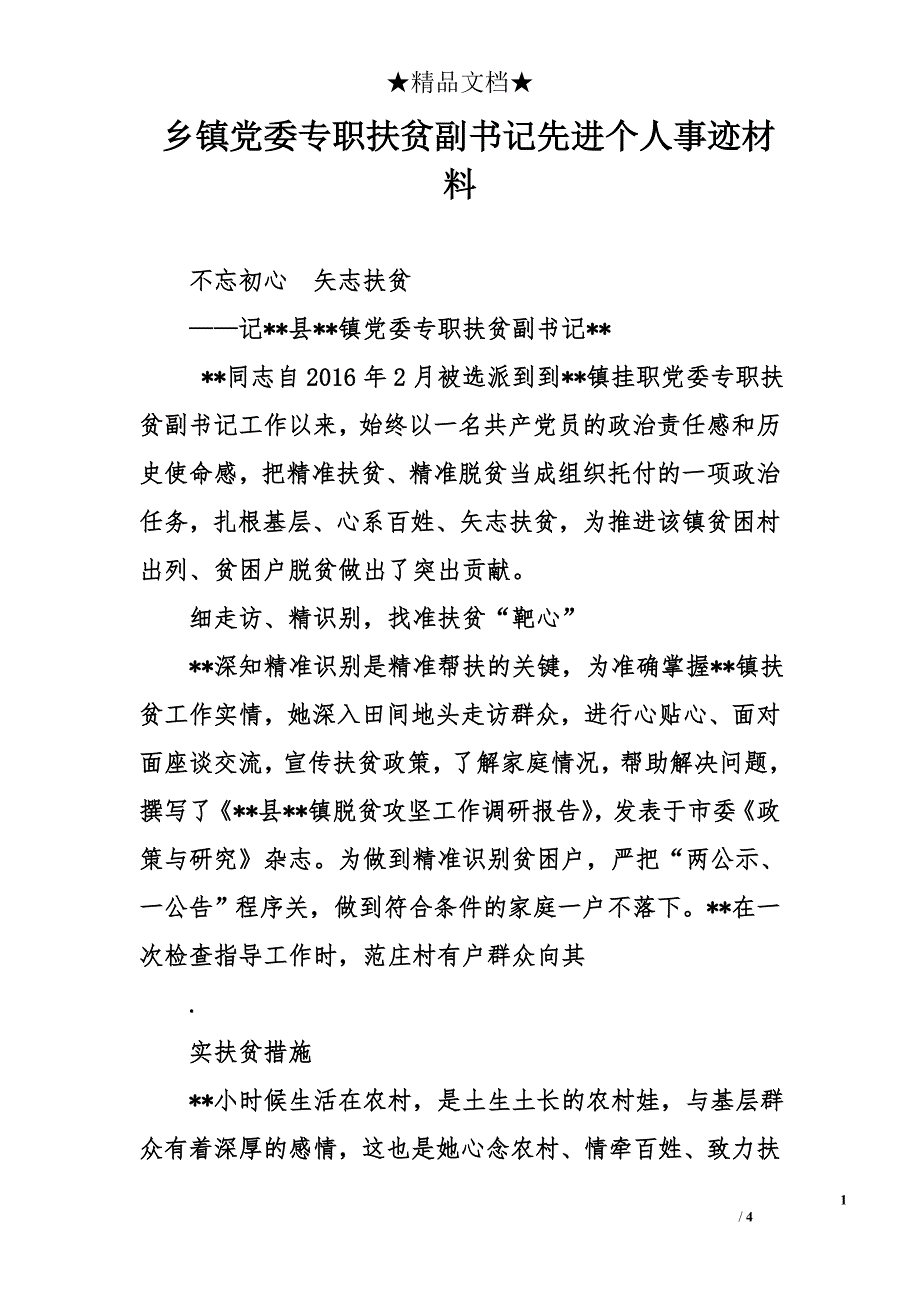 ★精品文档★
乡镇党委专职扶贫副书记先进个人事迹材
料
不忘初心　矢志扶贫
——记**县**镇党委专职扶贫副书记**
**同志自 2016 年 2 月被选派到到**镇挂职党委专职扶
贫副书记工作以来，始终以一名共产党员的政治责任感和历
史使命感，把精准扶贫、精准脱贫当成组织托付的一项政治
任务，扎根基层、心系百姓、矢志扶贫，为推进该镇贫困村
出列、贫困户脱贫做出了突出贡献。
细走访、精识别，找准扶贫“靶心”
**深知精准识别是精准帮扶的关键，为准确掌握**镇扶
贫工作实情，她深入田间地头走访群众，进行心贴心、面对
面座谈交流，宣传扶贫政策，了解家庭情况，帮助解决问题，
撰写了《**县**镇脱贫攻坚工作调研报告》，发表于市委《政
策与研究》杂志。为做到精准识别贫困户，严把“两公示、
一公告”程序关，做到符合条件的家庭一户不落下。**在一
次检查指导工作时，范庄村有户群众向其
.
实扶贫措施
**小时候生活在农村，是土生土长的农村娃，与基层群
众有着深厚的感情，这也是她心念农村、情牵百姓、致力扶
1
/ 4